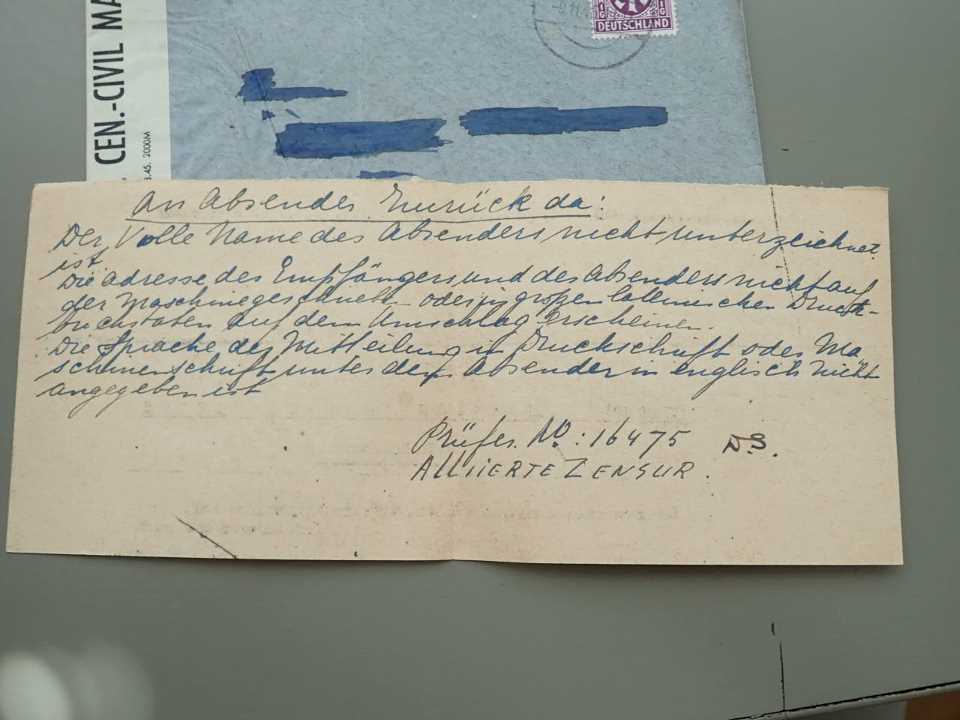 CEN.-CIVIL MA
.45. 2000M
G G
DEUTSCHLAND
An Absender Zurück da:
Der Volle Name des Absenders nicht unterzeichnet
ist.
Die Adresse des Empfängers und des Absenders nicht auf
der Maschine geschrieb. oder in großen lateinischen Druck-
buchstaben auf dem Umschlag erscheinen.
Die Sprache der Mitteilung in Druckschrift oder Ma
schinenschrift unter dem Absender in englisch nicht
angegeben ist
Prüfer. No: 16475 D.S.
ALLIIERTE ZENSUR.